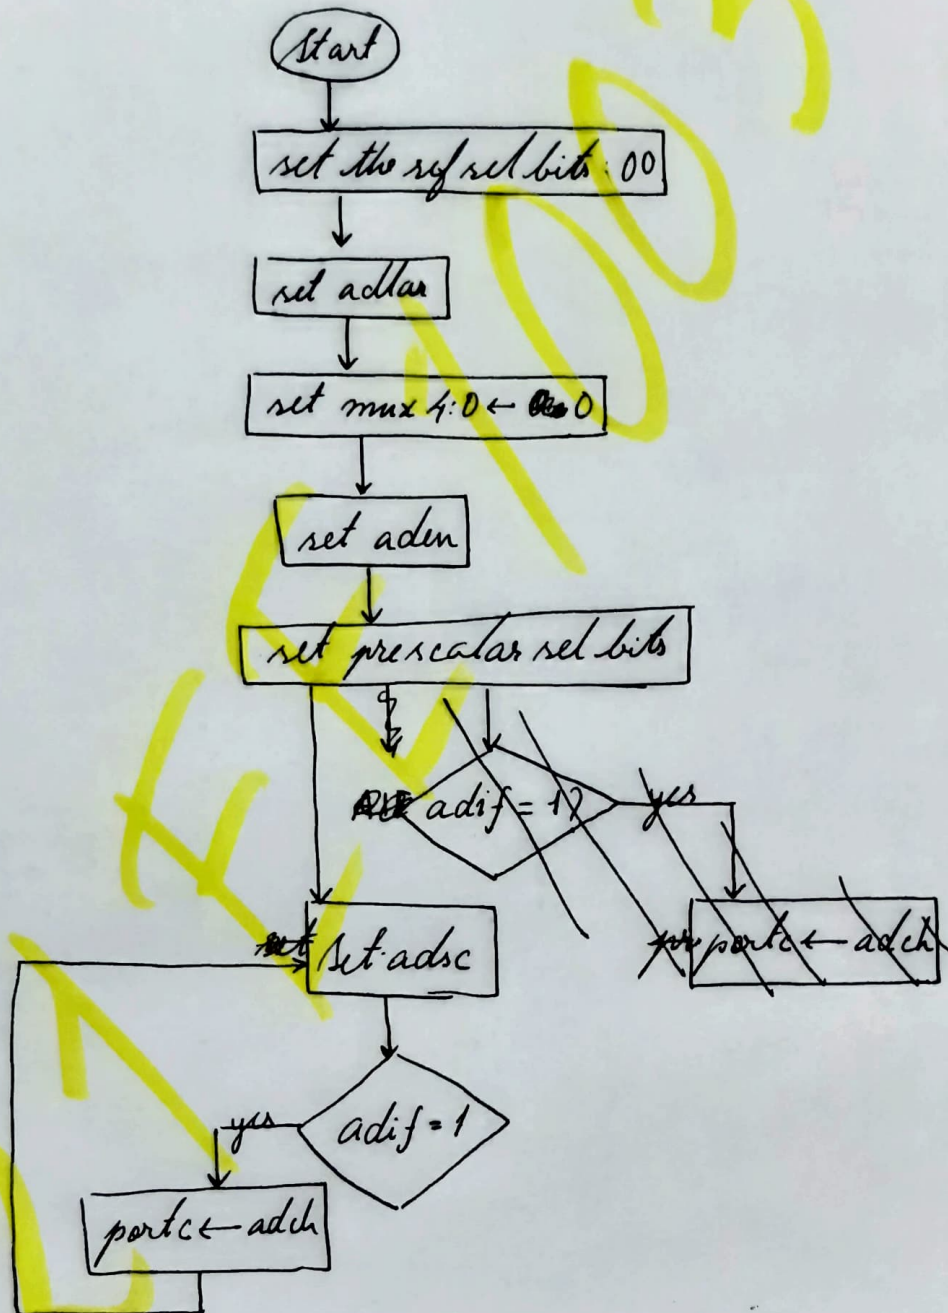 Start
set the ref sel bits: 00
set adlar
set mux 4:0 ← 0
set aden
set prescalar sel bits
adif = 1?
yes
portc ← adch
set adsc
adif = 1
yes
portc ← adch